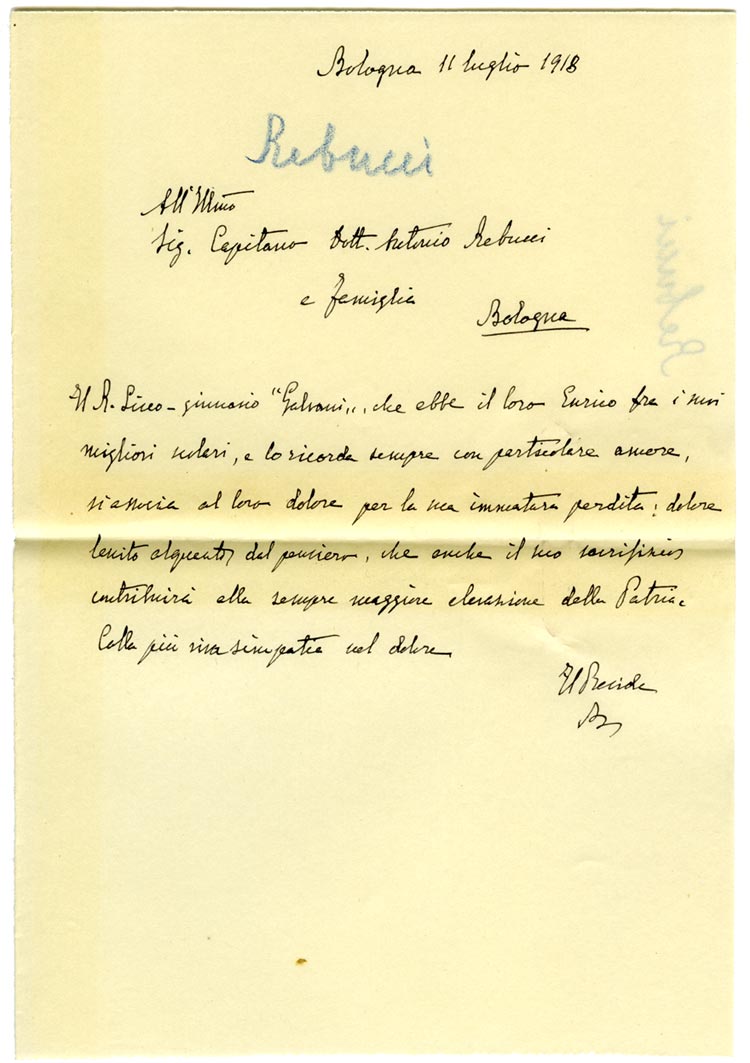 Bologna 11 luglio 1918
Rebucci
All'Illmo
Sig. Capitano Dott. Antonio Rebucci
e famiglia
Bologna
Il R. Liceo-ginnasio "Galvani", che ebbe il loro Enrico fra i suoi
migliori scolari, e lo ricorda sempre con particolare amore,
si associa al loro dolore per la sua immatura perdita; dolore
lenito alquanto, dal pensiero, che anche il suo sacrifizio
contribuirà alla sempre maggiore elevazione della Patria.
Colla più viva simpatia nel dolore
Il Preside